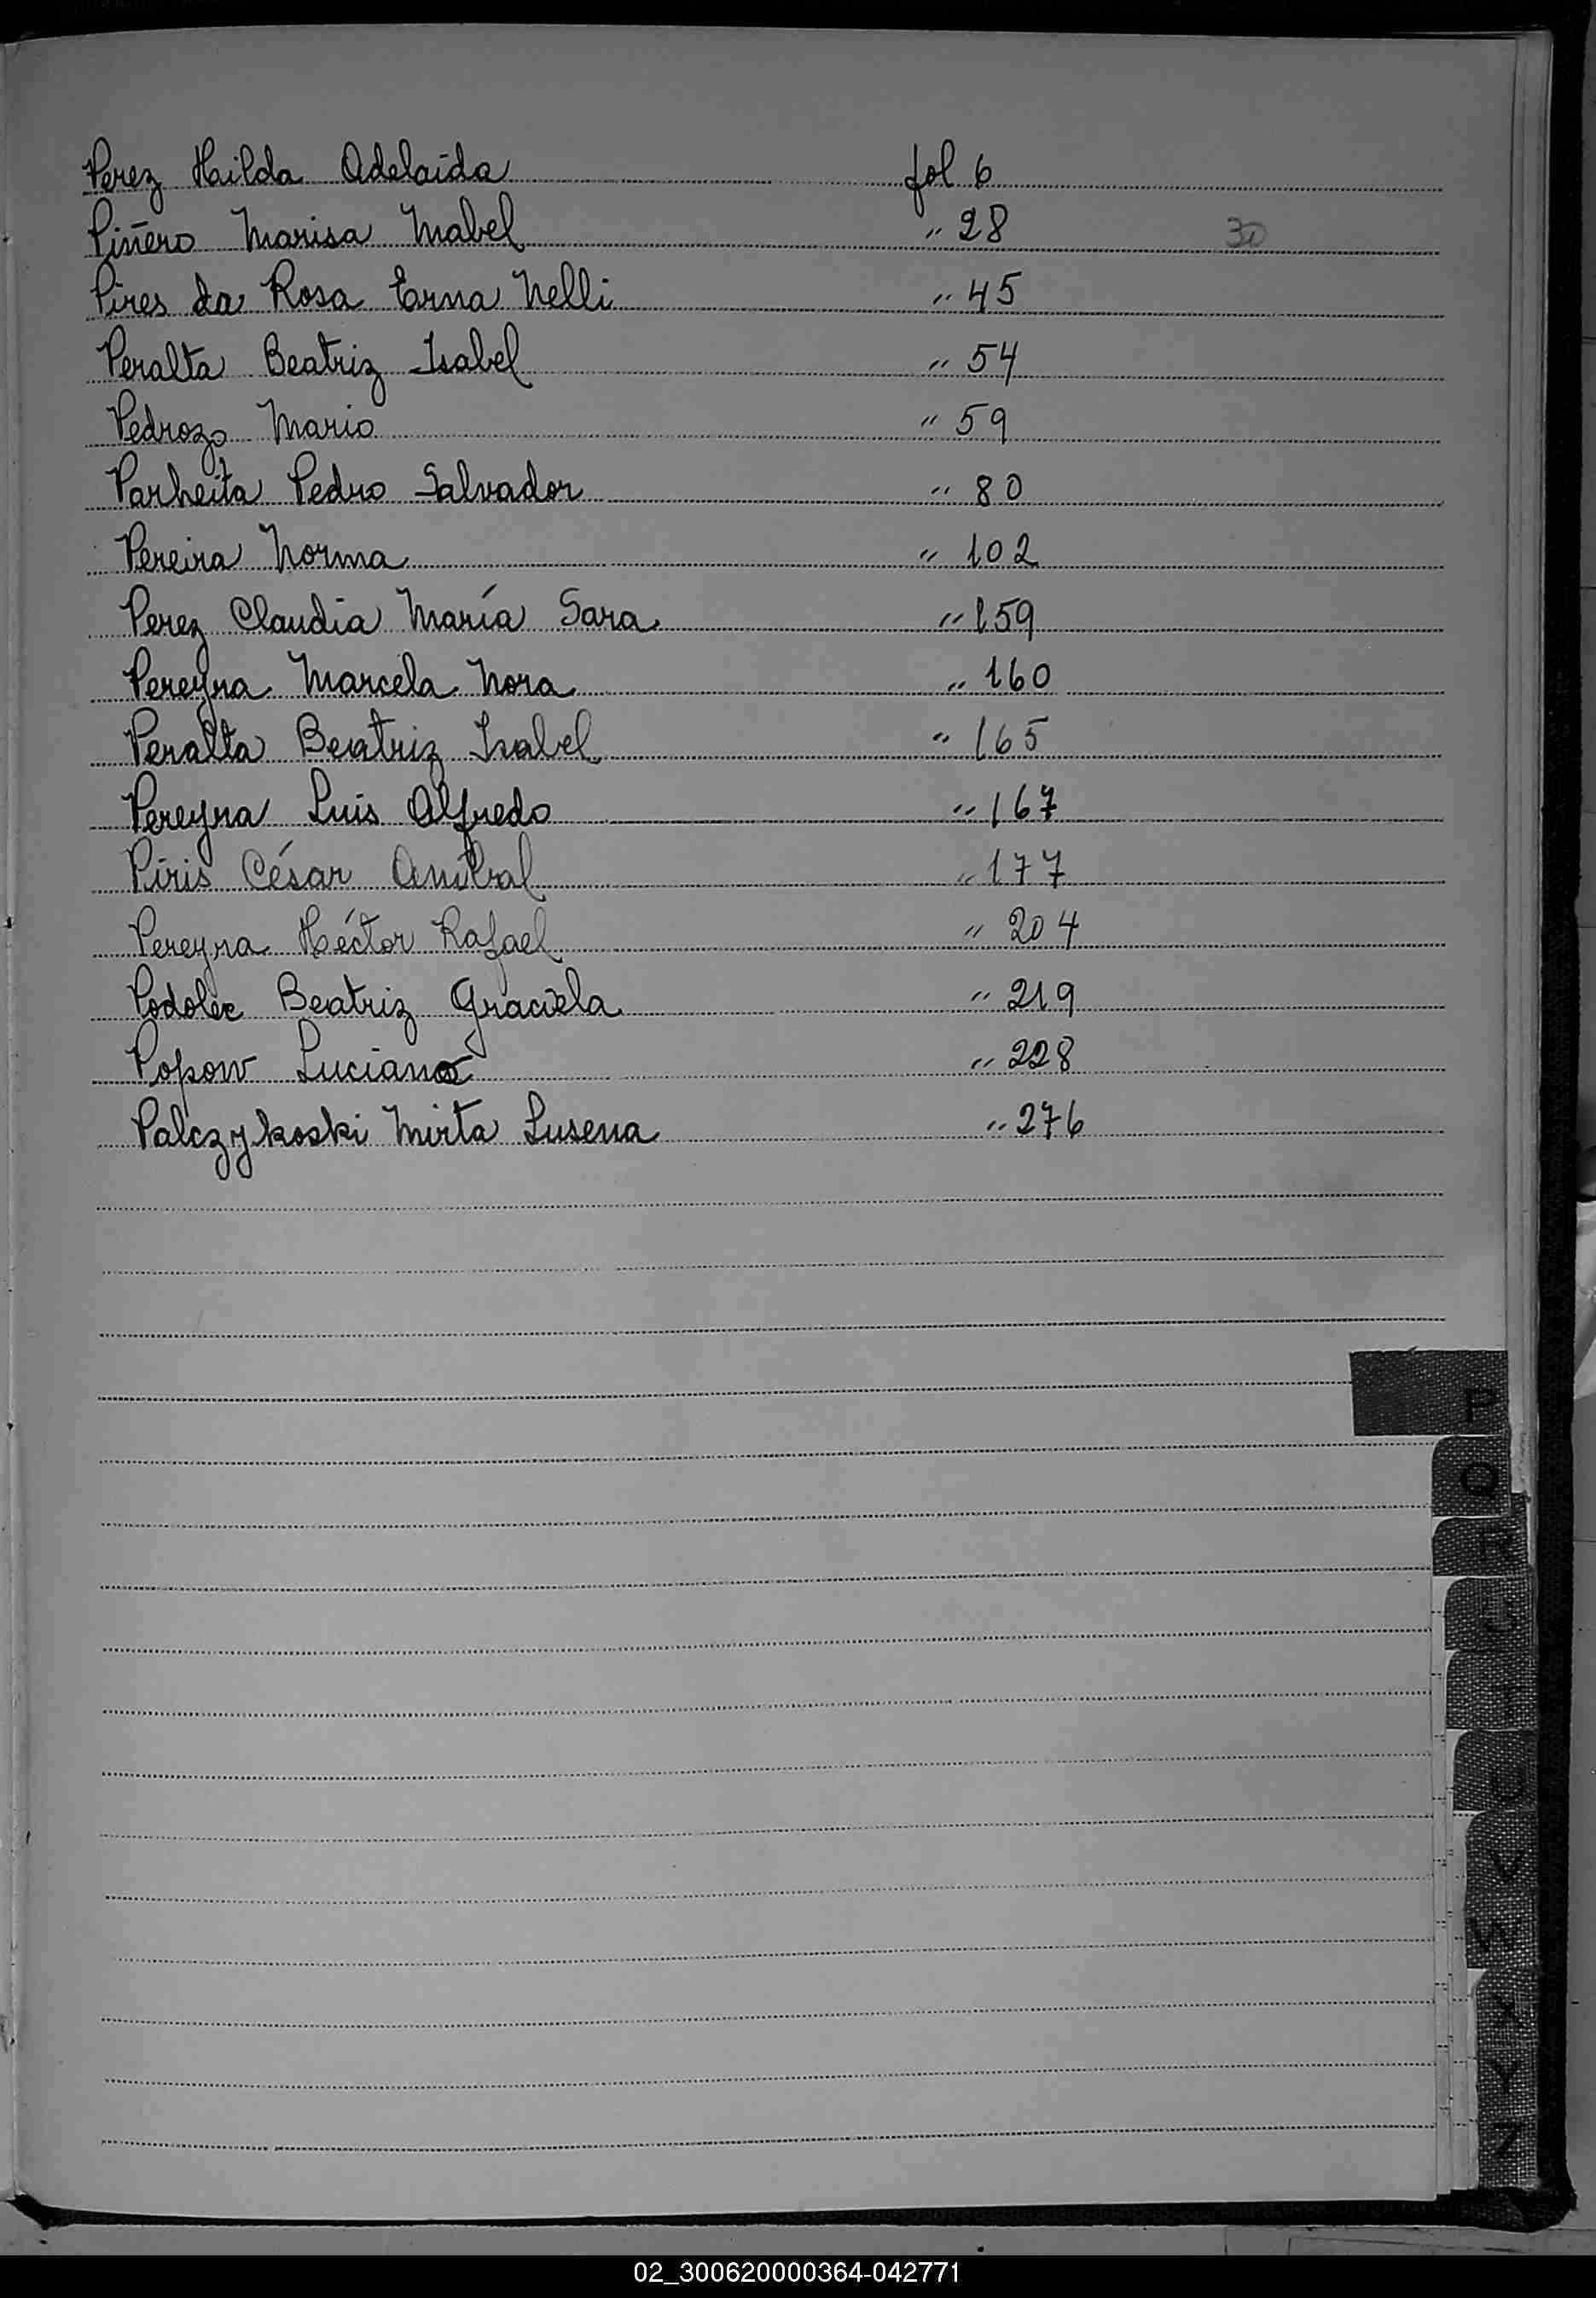 Perez Hilda Adelaida fol 6
Piñero Marisa Mabel " 28 30
Pires da Rosa Erna Nelli " 45
Peralta Beatriz Isabel " 54
Pedrozo Mario " 59
Parheita Pedro Salvador " 80
Pereira Norma " 102
Perez Claudia María Sara " 159
Pereyra Marcela Nora " 160
Peralta Beatriz Isabel " 165
Pereyra Luis Alfredo " 167
Piris César Anibal " 177
Pereyra Héctor Rafael " 204
Podolec Beatriz Graciela " 219
Popow Luciano " 228
Palczykoski Mirta Susena " 276
P
Q
R
S
T
U
V
W
X
Y
Z
02_300620000364-042771